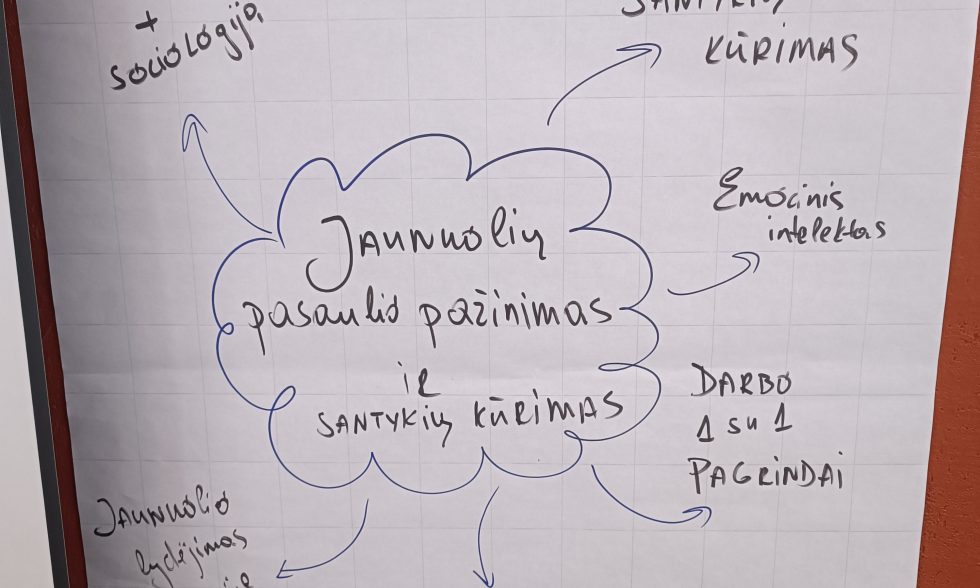 +
sociologija
SANTYKIŲ
KŪRIMAS
Emocinis
intelektas
Jaunuolių
pasaulio pažinimas
ir
SANTYKIŲ KŪRIMAS
DARBO
1 su 1
PAGRINDAI
Jaunuolio
lydėjimas